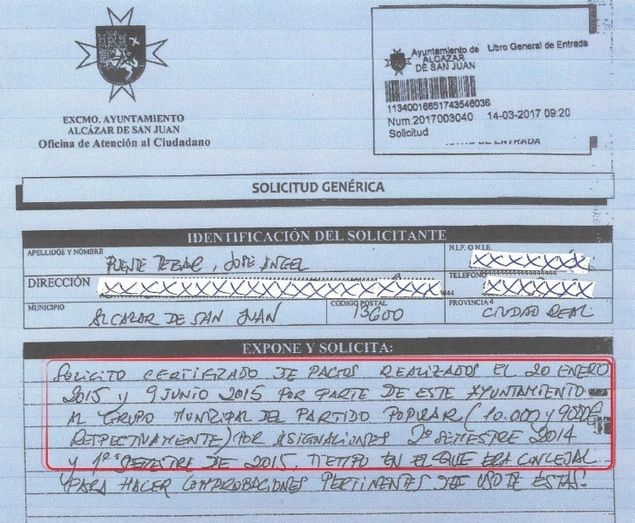 Ayuntamiento de
ALCAZAR
DE SAN JUAN
Libro General de Entrada
11340016651743546036
Num.2017003040 14-03-2017 09:20
Solicitud
EXCMO. AYUNTAMIENTO
ALCÁZAR DE SAN JUAN
Oficina de Atención al Ciudadano
SOLICITUD GENÉRICA
IDENTIFICACIÓN DEL SOLICITANTE
APELLIDOS Y NOMBRE
PUENTE TEBAR, JOSE ANGEL
N.I.F. O N.I.E.
DIRECCIÓN
TELEFONO
MUNICIPIO
ALCAZAR DE SAN JUAN
CÓDIGO POSTAL
13600
PROVINCIA
CIUDAD REAL
EXPONE Y SOLICITA:
SOLICITO CERTIFICADO DE PAGOS REALIZADOS EL 20 ENERO
2015 Y 9 JUNIO 2015 POR PARTE DE ESTE AYUNTAMIENTO
AL GRUPO MUNICIPAL DEL PARTIDO POPULAR (10.000 y
RESPECTIVAMENTE) POR ASIGNACIONES 2º SEMESTRE 2014
y 1º SEMESTRE DE 2015, TIEMPO EN EL QUE ERA CONCEJAL
PARA HACER COMPROBACIONES PERTINENTES DE USO DE ESTAS.